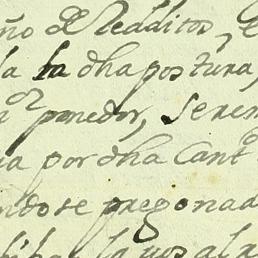 ño de Redditos, e
la la dha postura,
or ponedor, Se rem
ia por dha Cant
ndose pregonad